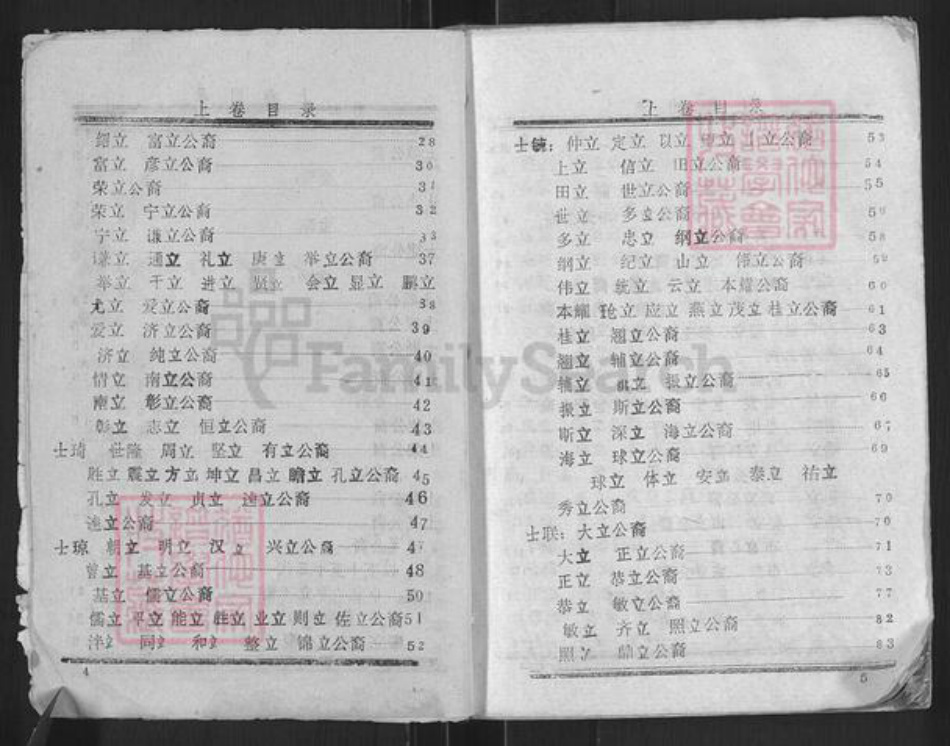 上卷目录
绍立 富立公裔 28
富立 彦立公裔 30
荣立公裔 31
荣立 宁立公裔 32
宁立 谦立公裔 33
谦立 通立 礼立 庚立 举立公裔 37
举立 干立 进立 贤立 会立 显立 鹏立
尤立 爱立公裔 38
爱立 济立公裔 39
济立 纯立公裔 40
情立 南立公裔 41
南立 彰立公裔 42
彰立 志立 恒立公裔 43
士琦 世隆 周立 坚立 有立公裔 44
胜立 震立 方立 坤立 昌立 瞻立 孔立公裔 45
孔立 发立 贞立 达立公裔 46
达立公裔 47
士琼 朝立 明立 汉立 兴立公裔 4
曾立 基立公裔 48
基立 儒立公裔 50
儒立 平立 能立 胜立 业立 则立 佐立公裔 51
泮立 同立 和立 整立 锦立公裔 52
4
上卷目录
仲立 定立 以立 立公裔 53
上立 信立 田立公裔 54
田立 世立公裔 55
世立 多立公裔 5
多立 忠立 纲立公裔 58
纲立 纪立 山立 伟立公裔 59
伟立 统立 云立 本耀公裔 60
本耀 应立 燕立 茂立 桂立公裔 61
桂立 翘立公裔 63
翘立 辅立公裔 64
辅立 振立公裔 65
振立 斯立公裔 66
斯立 深立 海立公裔 67
海立 球立公裔 69
球立 体立 安立 泰立 祐立
秀立公裔 70
士联: 大立公裔 70
大立 正立公裔 71
正立 恭立公裔 73
恭立 敏立公裔 77
敏立 齐立 照立公裔 82
照立 立公裔 83
5
FamilySearch